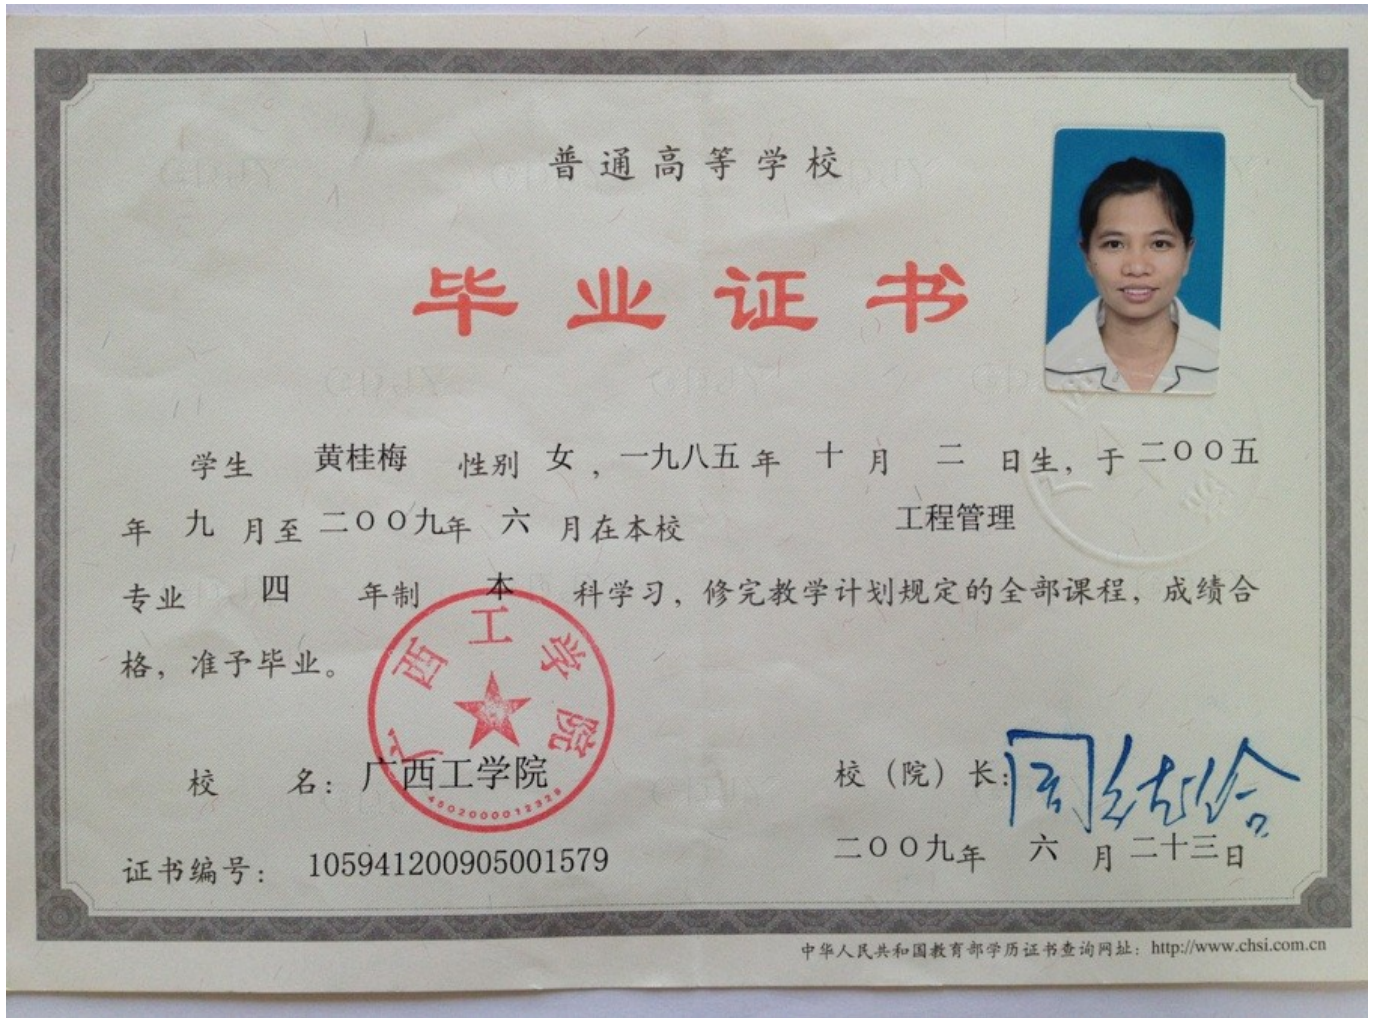 普通高等学校
毕业证书
学生 黄桂梅 性别 女，一九八五年 十 月 二 日生，于二〇〇五
年 九 月至 二〇〇九年 六 月在本校 工程管理
专业 四 年制 本 科学习，修完教学计划规定的全部课程，成绩合
格，准予毕业。
广西工学院
4502000012328
校 名：广西工学院
校（院）长：
二〇〇九年 六 月 二十三日
证书编号：105941200905001579
中华人民共和国教育部学历证书查询网址：http://www.chsi.com.cn